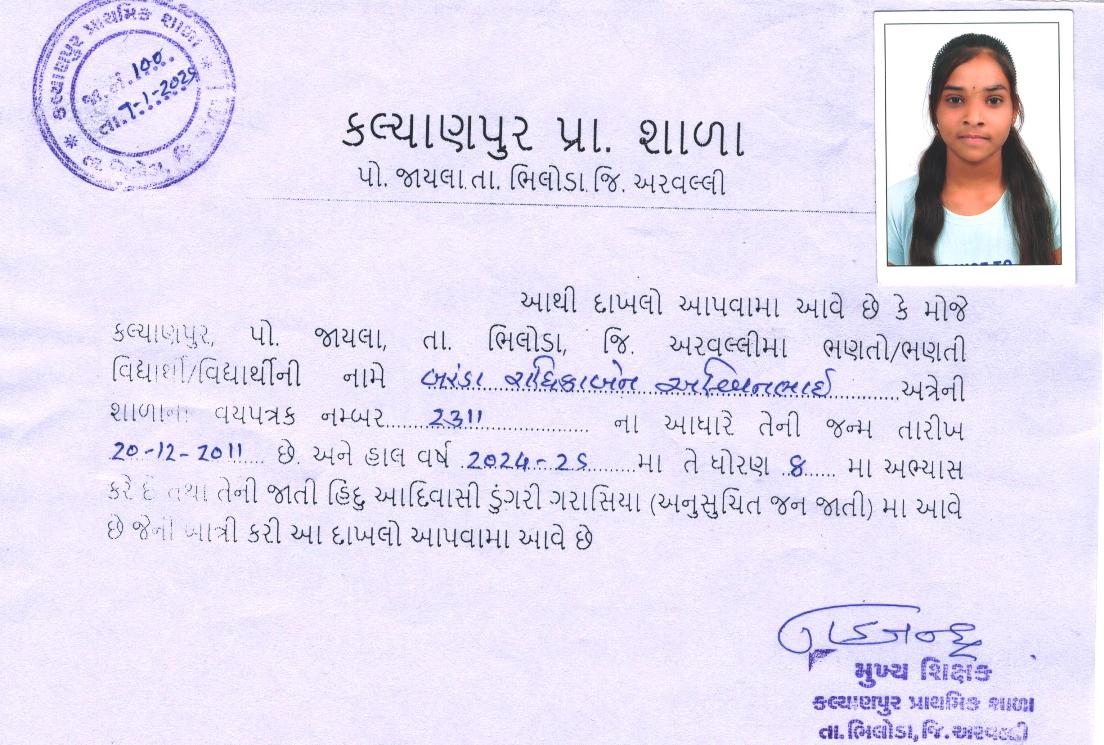 કલ્યાણપુર પ્રાથમિક શાળા
જા.નં.૧૦૭
તા.7-1-2025
કલ્યાણપુર પ્રા. શાળા
પો. જાયલા.તા. ભિલોડા.જિ. અરવલ્લી
આથી દાખલો આપવામા આવે છે કે મોજે
કલ્યાણપુર, પો. જાયલા, તા. ભિલોડા, જિ. અરવલ્લીમા ભણતો/ભણતી
વિદ્યાર્થી/વિદ્યાર્થીની નામે બરંડા રાધિકાબેન અશ્વિનભાઈ અત્રેની
શાળાના વયપત્રક નમ્બર 2311 ના આધારે તેની જન્મ તારીખ
20-12-2011 છે. અને હાલ વર્ષ 2024-25 મા તે ધોરણ 8 મા અભ્યાસ
કરે છે તથા તેની જાતી હિદુ આદિવાસી ડુંગરી ગરાસિયા (અનુસુચિત જન જાતી) મા આવે
છે જેની ખાત્રી કરી આ દાખલો આપવામા આવે છે
મુખ્ય શિક્ષક
કલ્યાણપુર પ્રાથમિક શાળા
તા.ભિલોડા,જિ.અરવલ્લી